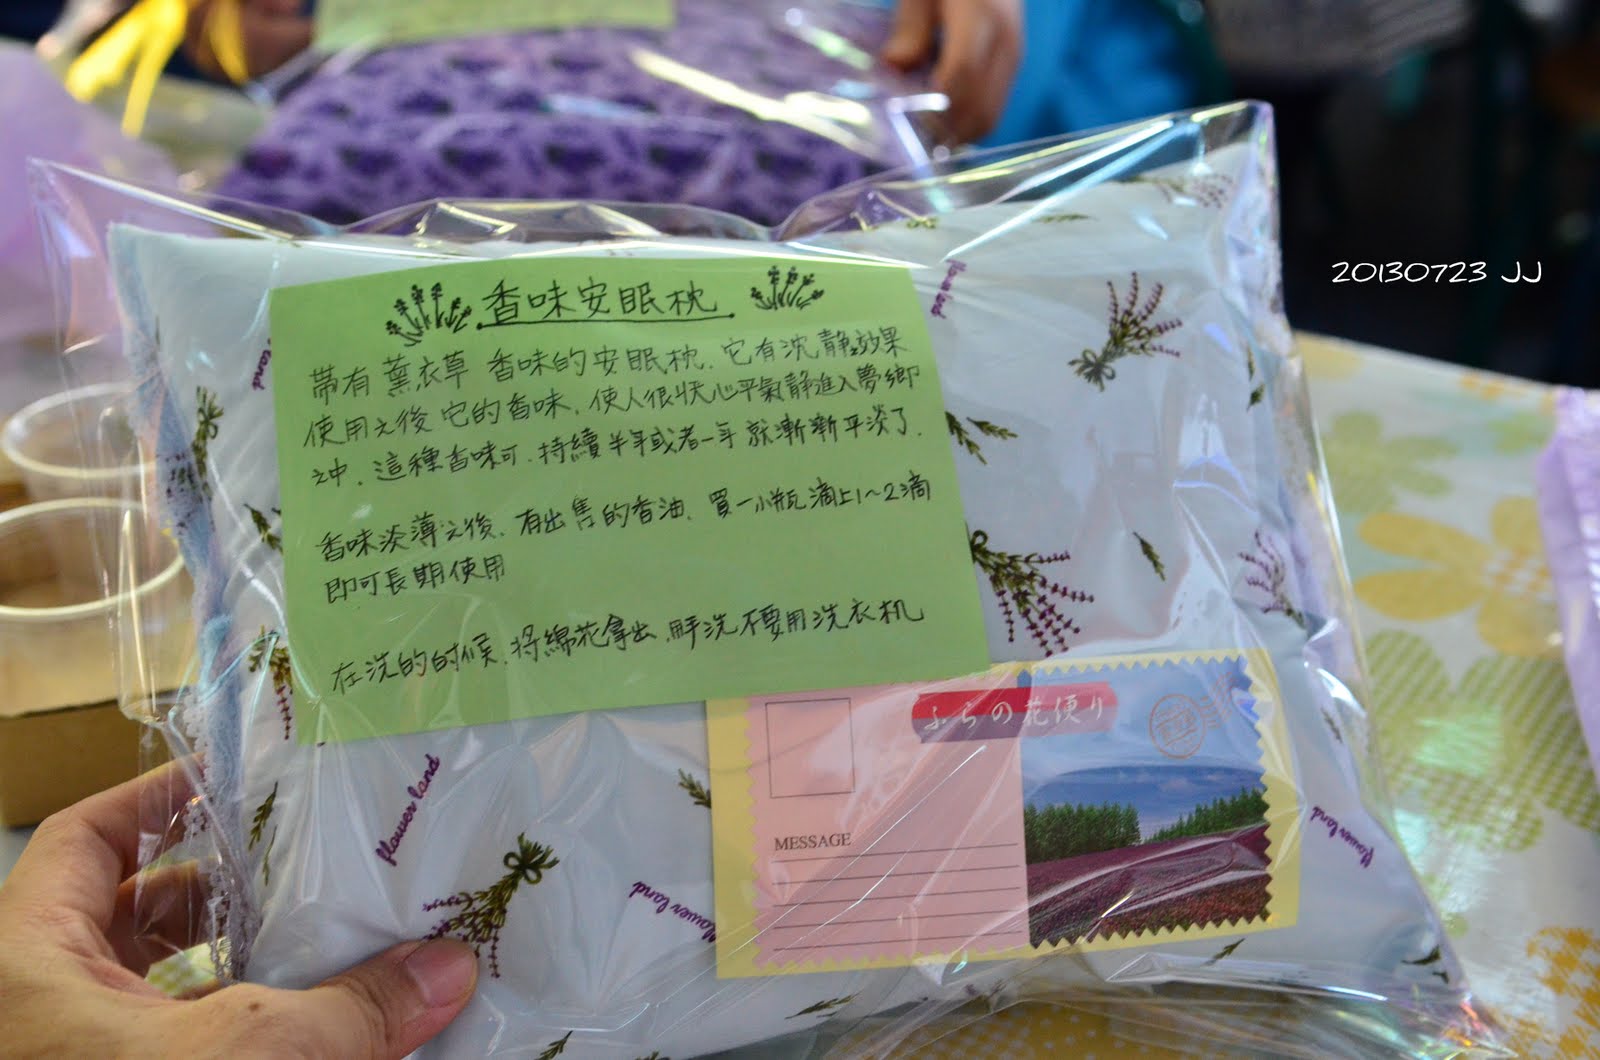 20130723 JJ
香味安眠枕
帶有 薰衣草 香味的安眠枕. 它有沈靜效果
使用之後 它的香味. 使人很快心平氣靜進入夢鄉
之中. 這種香味可. 持續半年或者一年 就漸漸平淡了.
香味淡薄之後. 有出售的香油. 買一小瓶滴上1~2滴
即可長期使用
在洗的時候. 將綿花拿出. 用手洗不要用洗衣机
ふらの花便り
MESSAGE
flower land
flower land
flower land
flower land